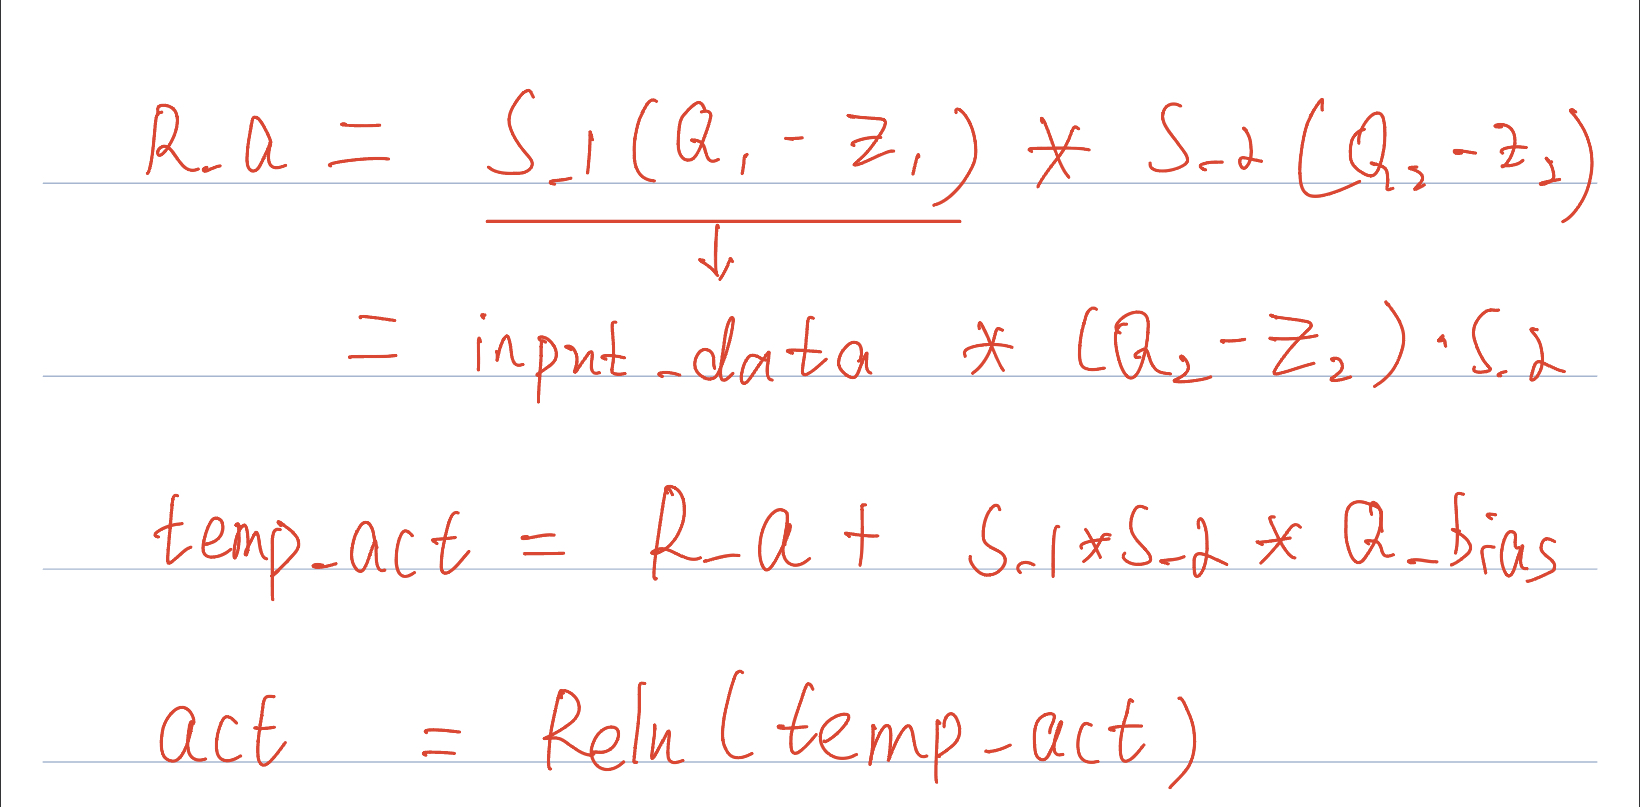 R_a = S_1(Q₁ - Z₁) * S_2(Q₂ - Z₂)
= input_data * (Q₂ - Z₂) · S_2
temp_act = R_a + S_1 * S_2 * Q_bias
act = Relu(temp_act)